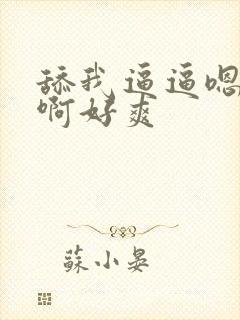 舔我逼逼嗯
啊好爽
蘇小晏